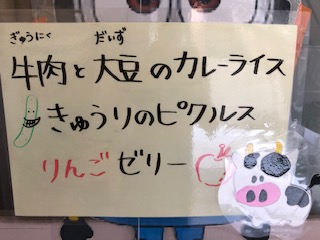 ぎゅうにく だいず
牛肉と大豆のカレーライス
きゅうりのピクルス
りんごゼリー